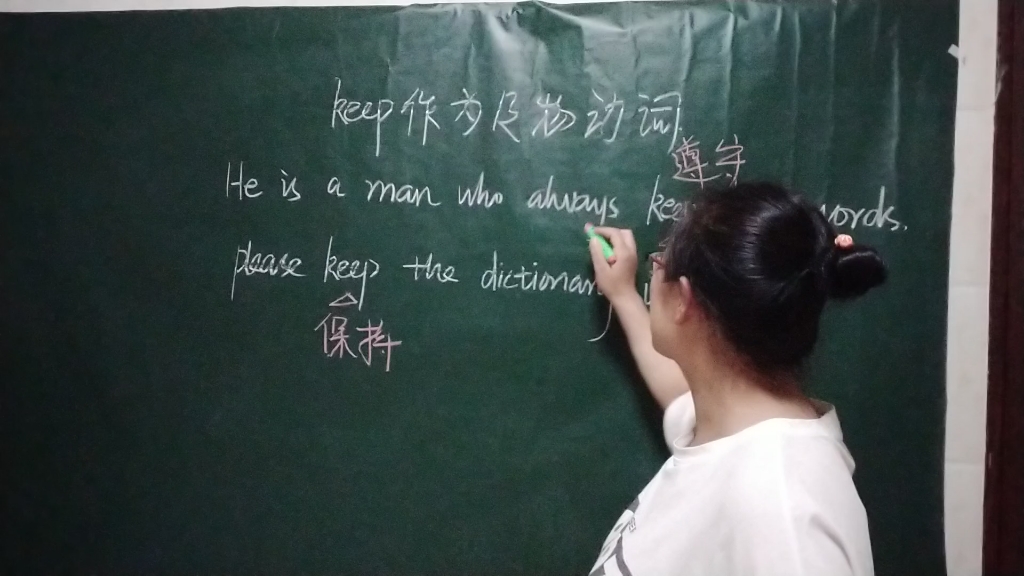 keep作为及物动词.
遵守
He is a man who always keep words.
please keep the dictionary
保持